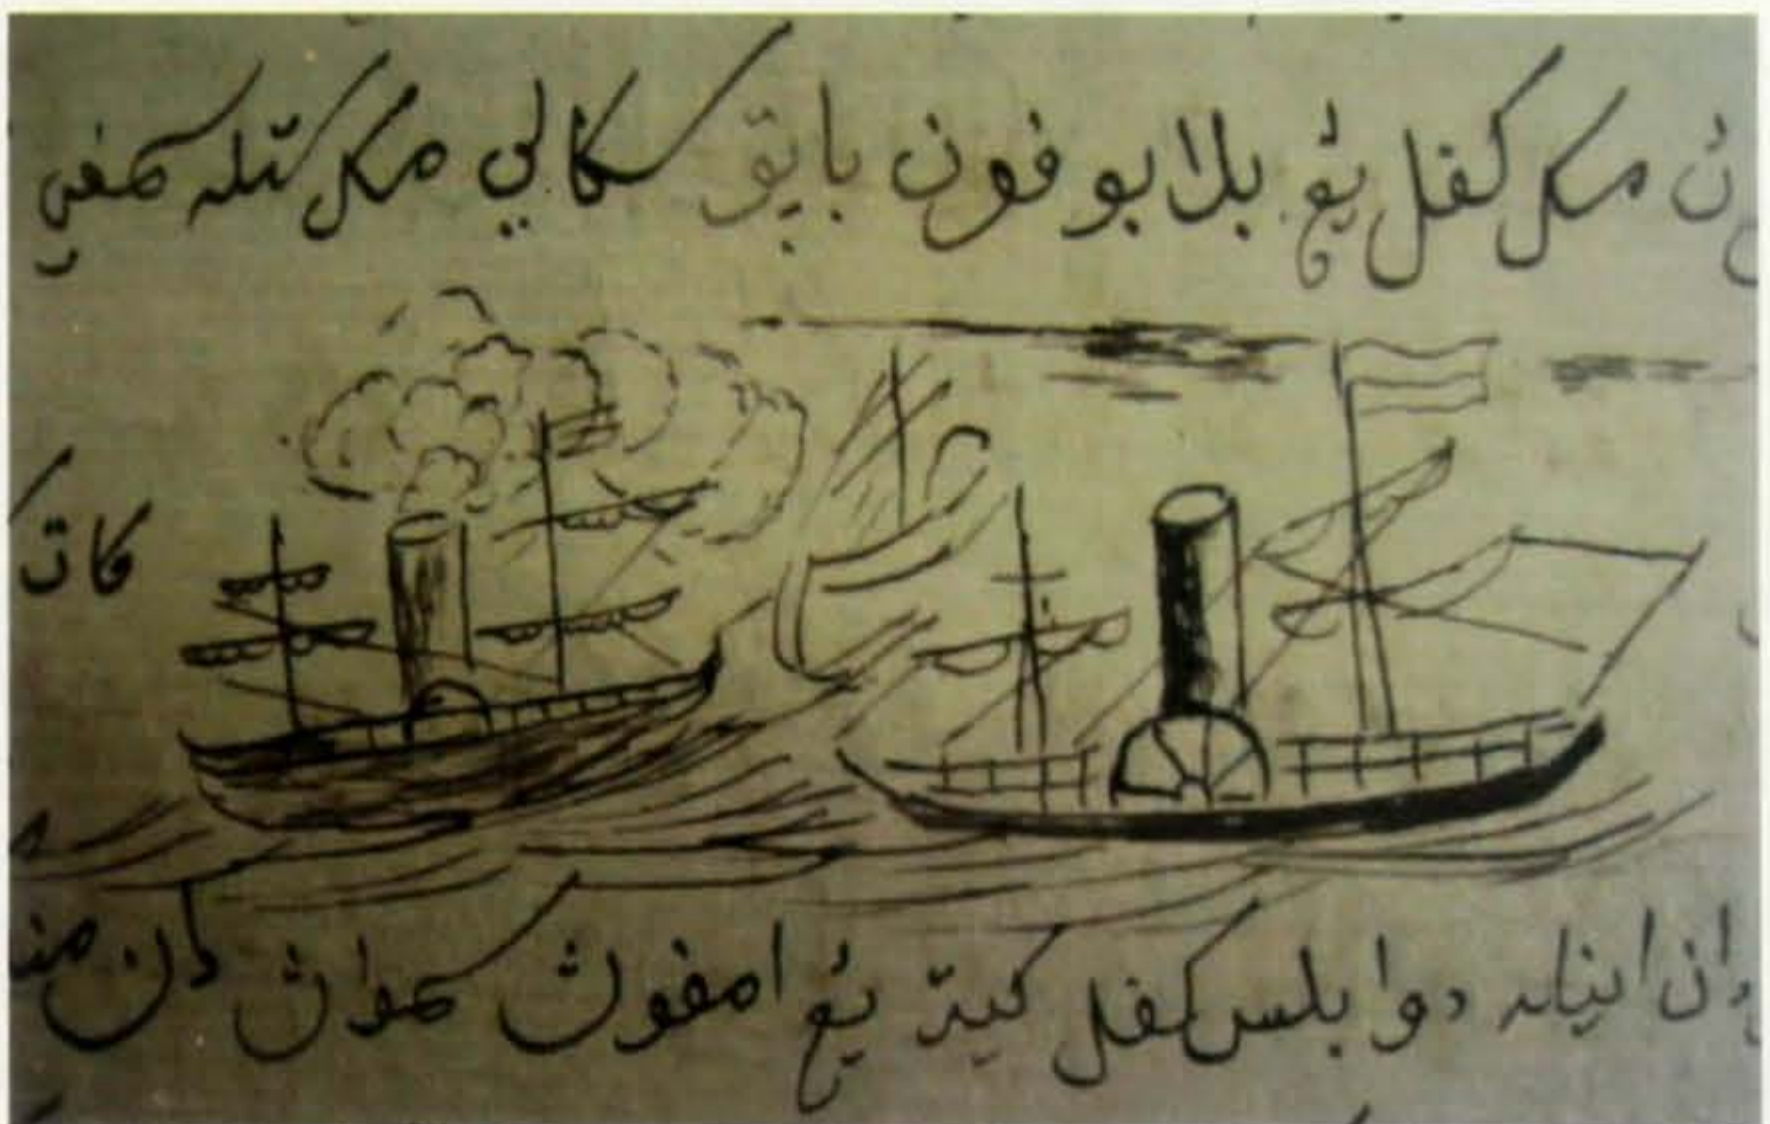 مک کفل يڠ بلابو فون باپق سکالي مک تله سمفي
کات
دان اينله دوا بلس کفل کيت يڠ امفوڽ سمواڽ دان